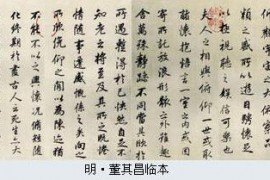 類之盛所以遊目騁懷足
以極視聽之娛信可樂也
夫人之相與俯仰一世或取
諸懷抱悟言一室之內或因
寄所託放浪形骸之外雖趣
舍萬殊靜躁不同當其欣於
所遇暫得於己快然自足不
知老之將至及其所之既惓
情隨事遷感慨係之矣向之
所欣俛仰之間以為陳迹猶
不能不以之興懷況脩短隨
化終期於盡古人云死生亦大
明·董其昌临本